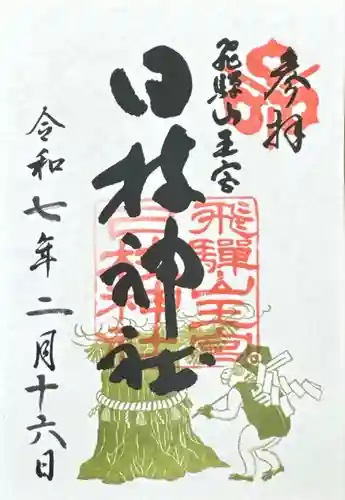 参拝
飛騨山王宮
日枝神社
飛騨山王宮
日枝神社
令和七年二月十六日